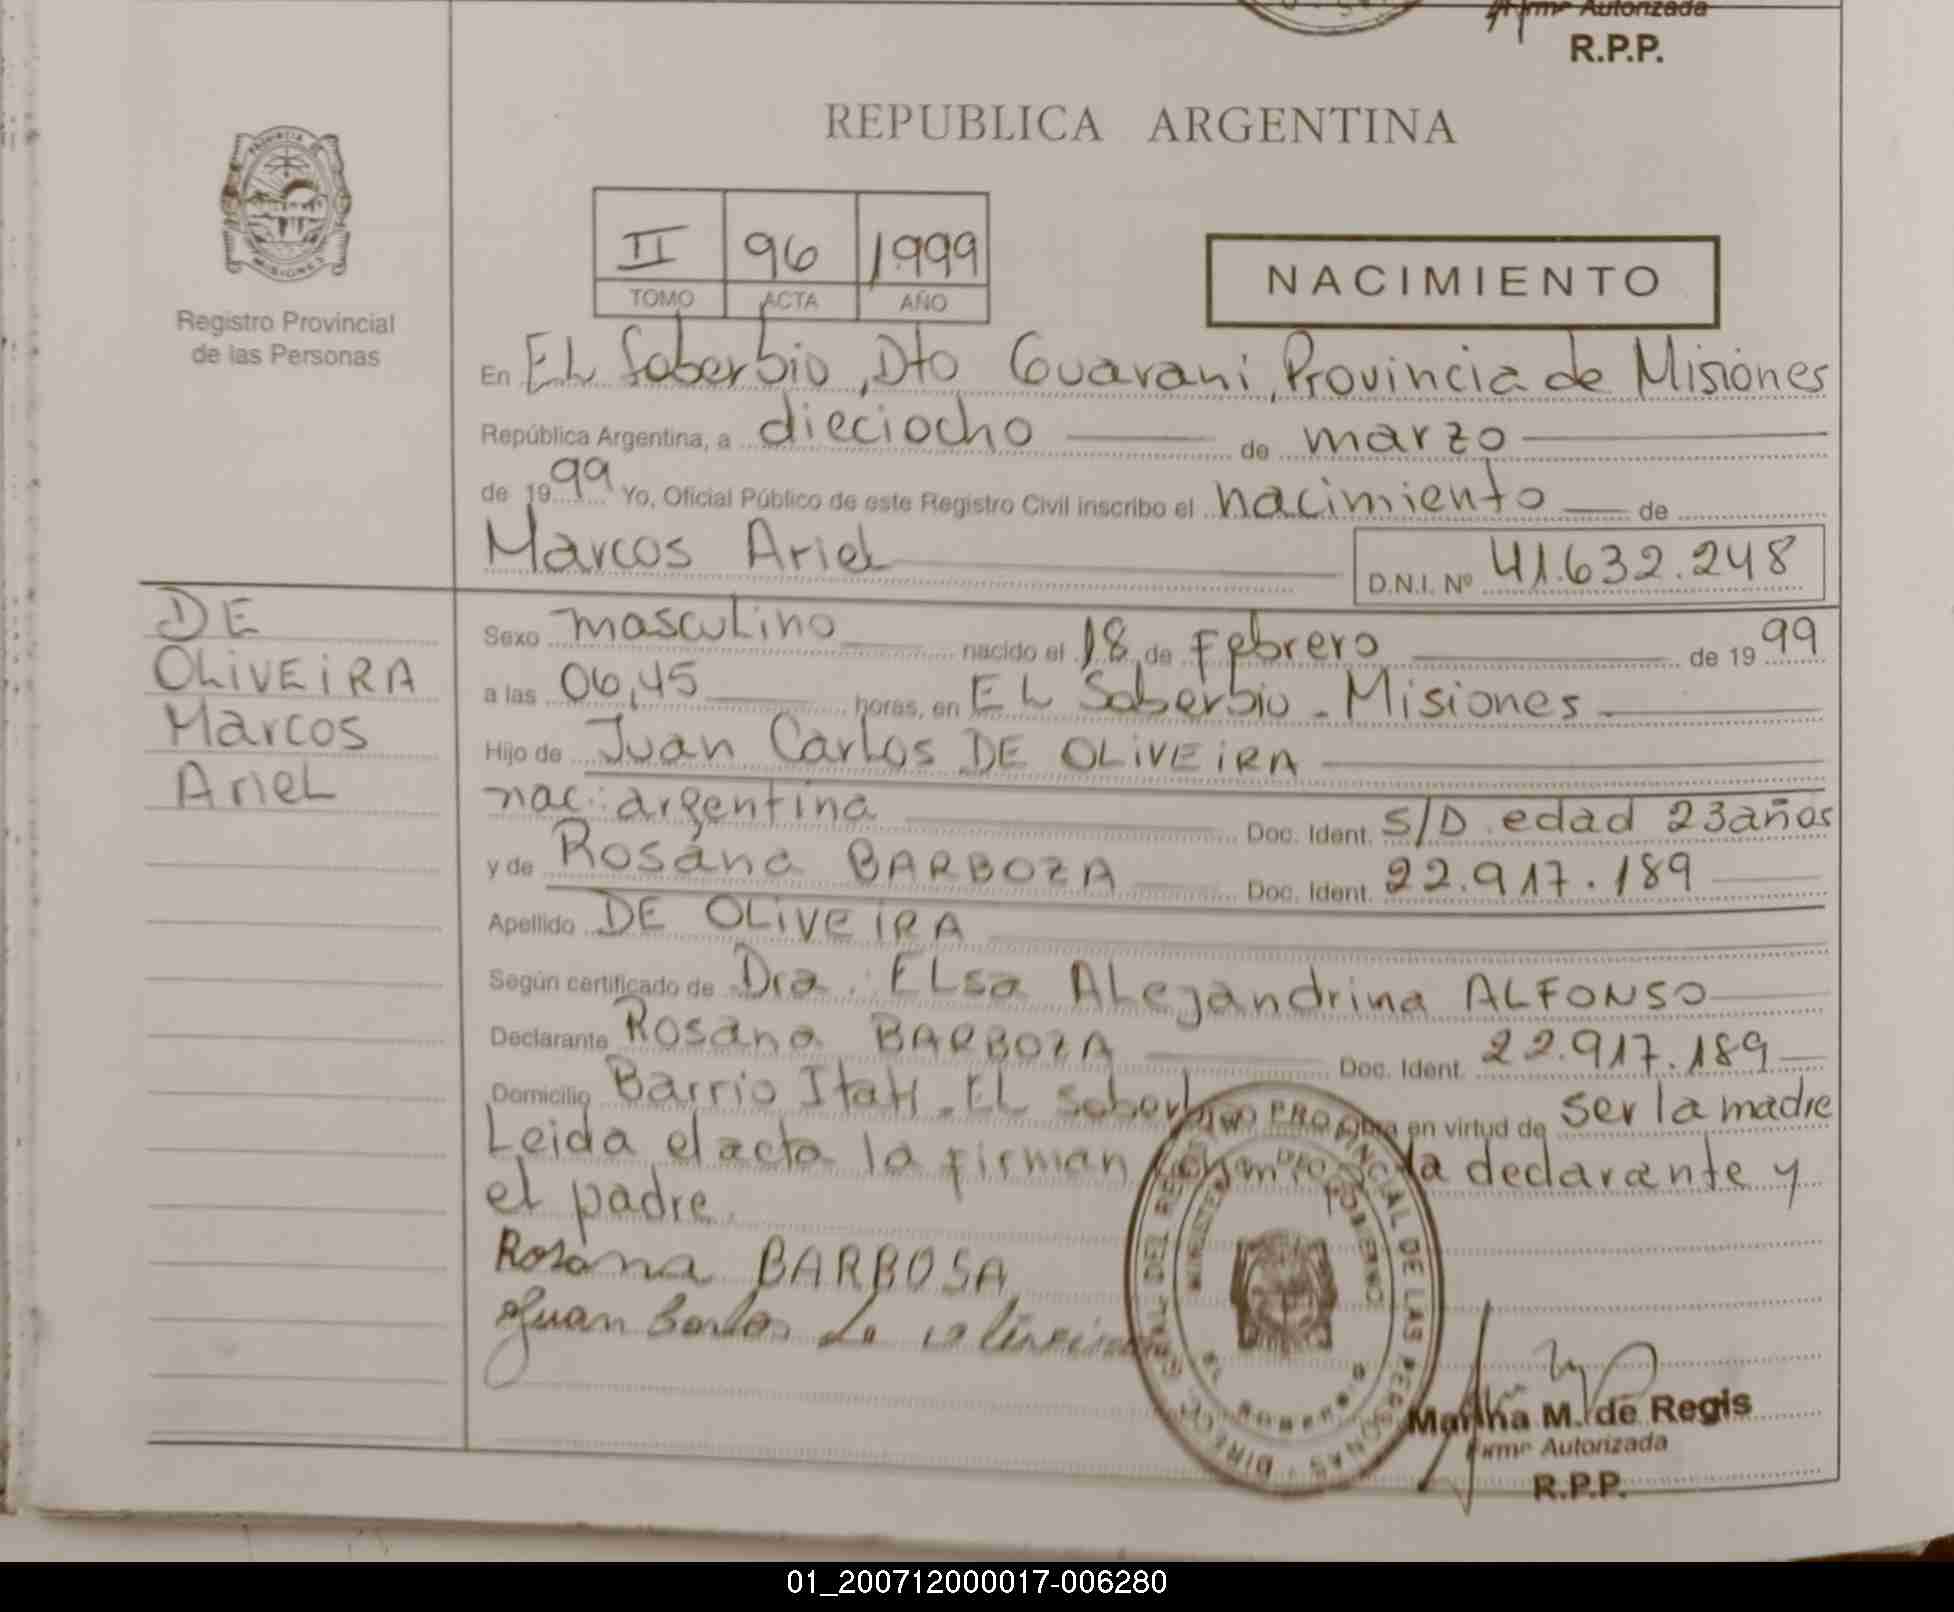 Firma Autorizada
R.P.P.
REPUBLICA ARGENTINA
PROVINCIA DE MISIONES
Registro Provincial
de las Personas
II 96 1999
TOMO ACTA AÑO
NACIMIENTO
En EL Soberbio, Dto Guarani, Provincia de Misiones
República Argentina, a dieciocho de marzo
de 1999 Yo, Oficial Público de este Registro Civil inscribo el nacimiento de
Marcos Ariel D.N.I. Nº 41.632.248
DE
OLIVEIRA
Marcos
Ariel
Sexo masculino nacido el 18 de Febrero de 1999
a las 06,45 horas, en EL Soberbio - Misiones
Hijo de Juan Carlos DE OLIVEIRA
nac: argentina Doc. Ident. S/D edad 23 años
y de Rosana BARBOZA Doc. Ident. 22.917.189
Apellido DE OLIVEIRA
Según certificado de Dra. ELsa ALejandrina ALFONSO
Declarante Rosana BARBOZA Doc. Ident. 22.917.189
Domicilio Barrio Itatí - EL Soberbio Obra en virtud de ser la madre
Leida el acta la firman conmigo la declarante y
el padre.
Rosana BARBOSA
Juan Carlos de
DIRECC. GRAL. DEL REGISTRO PROVINCIAL DE LAS PERSONAS
MINISTERIO DE GOBIERNO
Martha M. de Regis
Firma Autorizada
R.P.P.
01_200712000017-006280